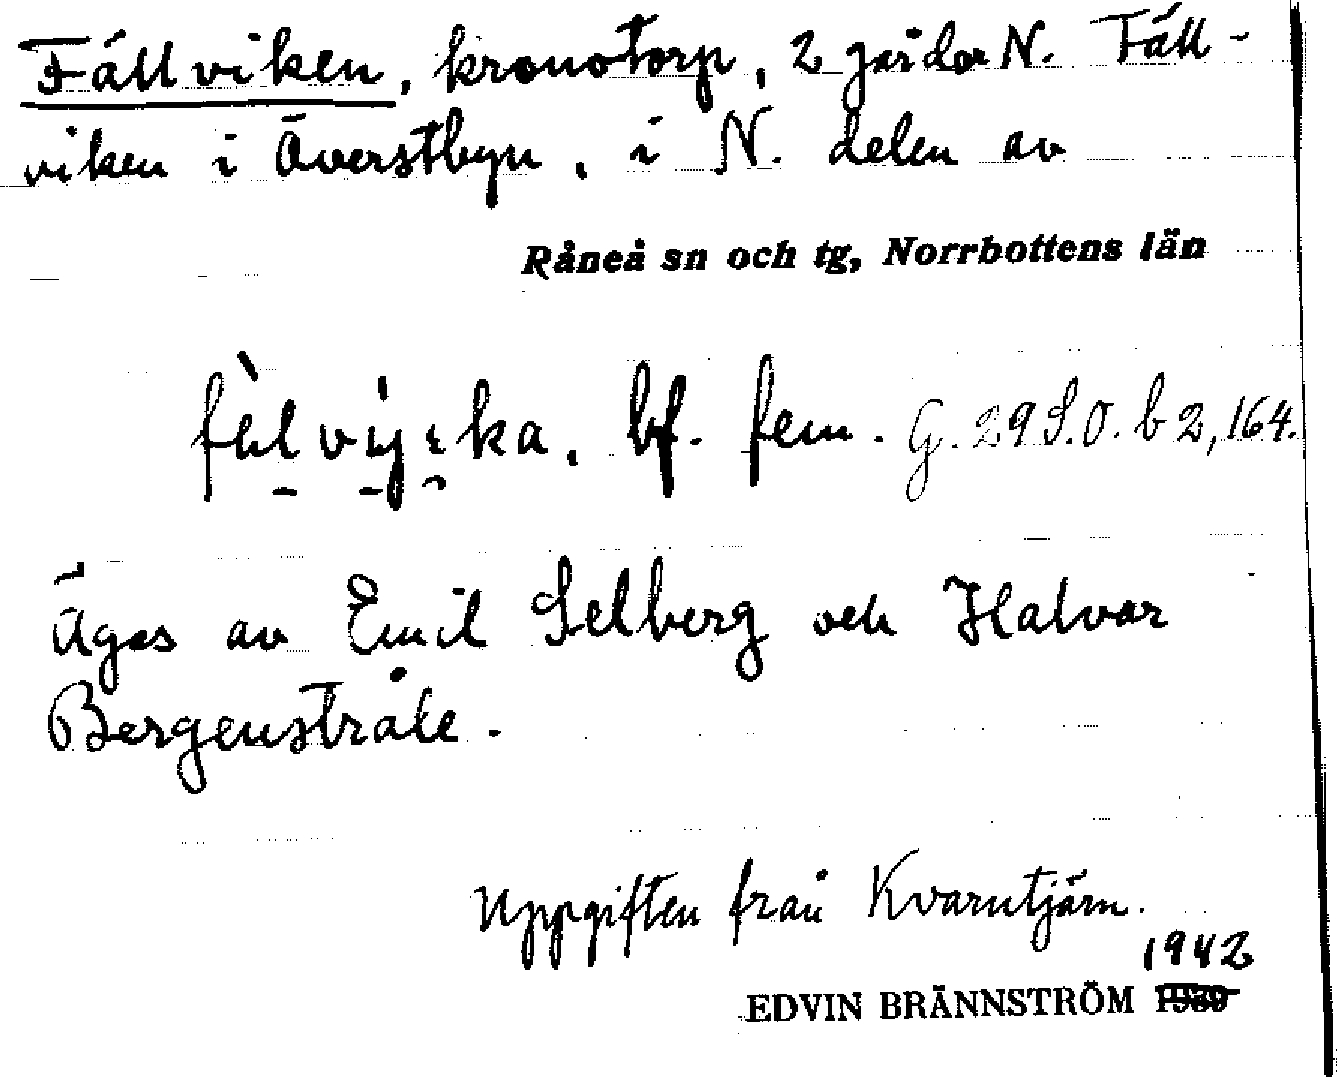 Fällviken, kronotorp, 2 gårdar N. Fäll-
viken i Överstbyn, i N. delen av
Råneå sn och tg, Norrbottens län
bf. fem. G. 29 S.O. b 2, 164.
Äges av Emil Selberg och Halvar
Bergenstråle.
Uppgiften från Kvarntjärn.
1942
EDVIN BRÄNNSTRÖM 1939